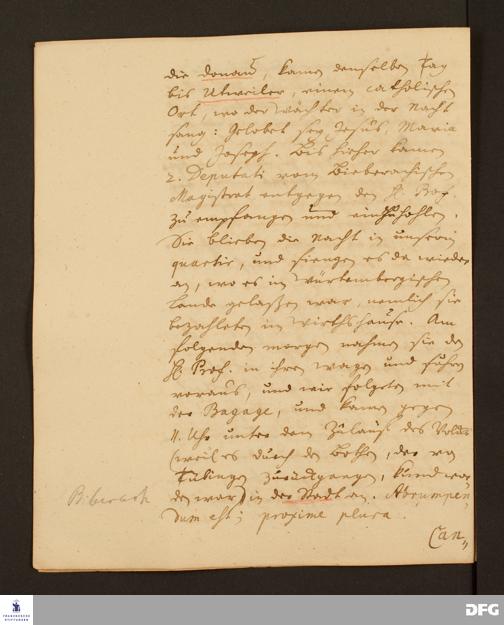 die Donau, kamen denselben Tag
bis Utweiler, einem catholischen
Ort, wo der Wächter in der Nacht
sang: Gelobet sey Jesus, Maria
und Joseph. Bis hieher kamen
2. Deputati vom Biberachischen
Magistrat entgegen den H. Prof.
zu empfangen und einzuhohlen.
Sie blieben die Nacht in unserm
quartir, und fiengen es da wieder
an, wo es im Würtembergischen
Lande gelaßen war, nemlich sie
bezahleten im Wirthshause. Am
folgenden morgen nahmen sie den
H. Prof. in ihren wagen und fuhren
voraus, und wir folgeten mit
der Bagage, und kamen gegen
11. Uhr unter dem Zulauf des Volcks
(weil es durch den Bothen, der von
Tübingen zurückgangen, kund wor
den war) in der Stadt an. Abrumpen
dum est; proxime plura.
Biberach
Can„
FRANCKESCHE
STIFTUNGEN
DFG